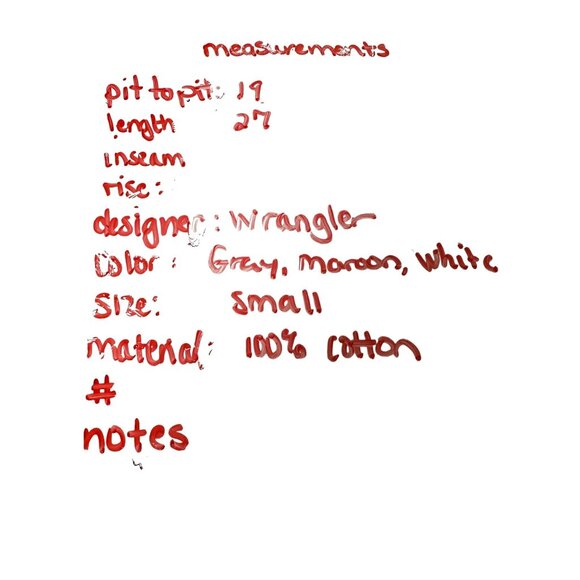 measurements
pit to pit: 19
length 27
inseam
rise:
designer: Wrangler
color: Gray, maroon, white
size: small
material: 100% cotton
#
notes